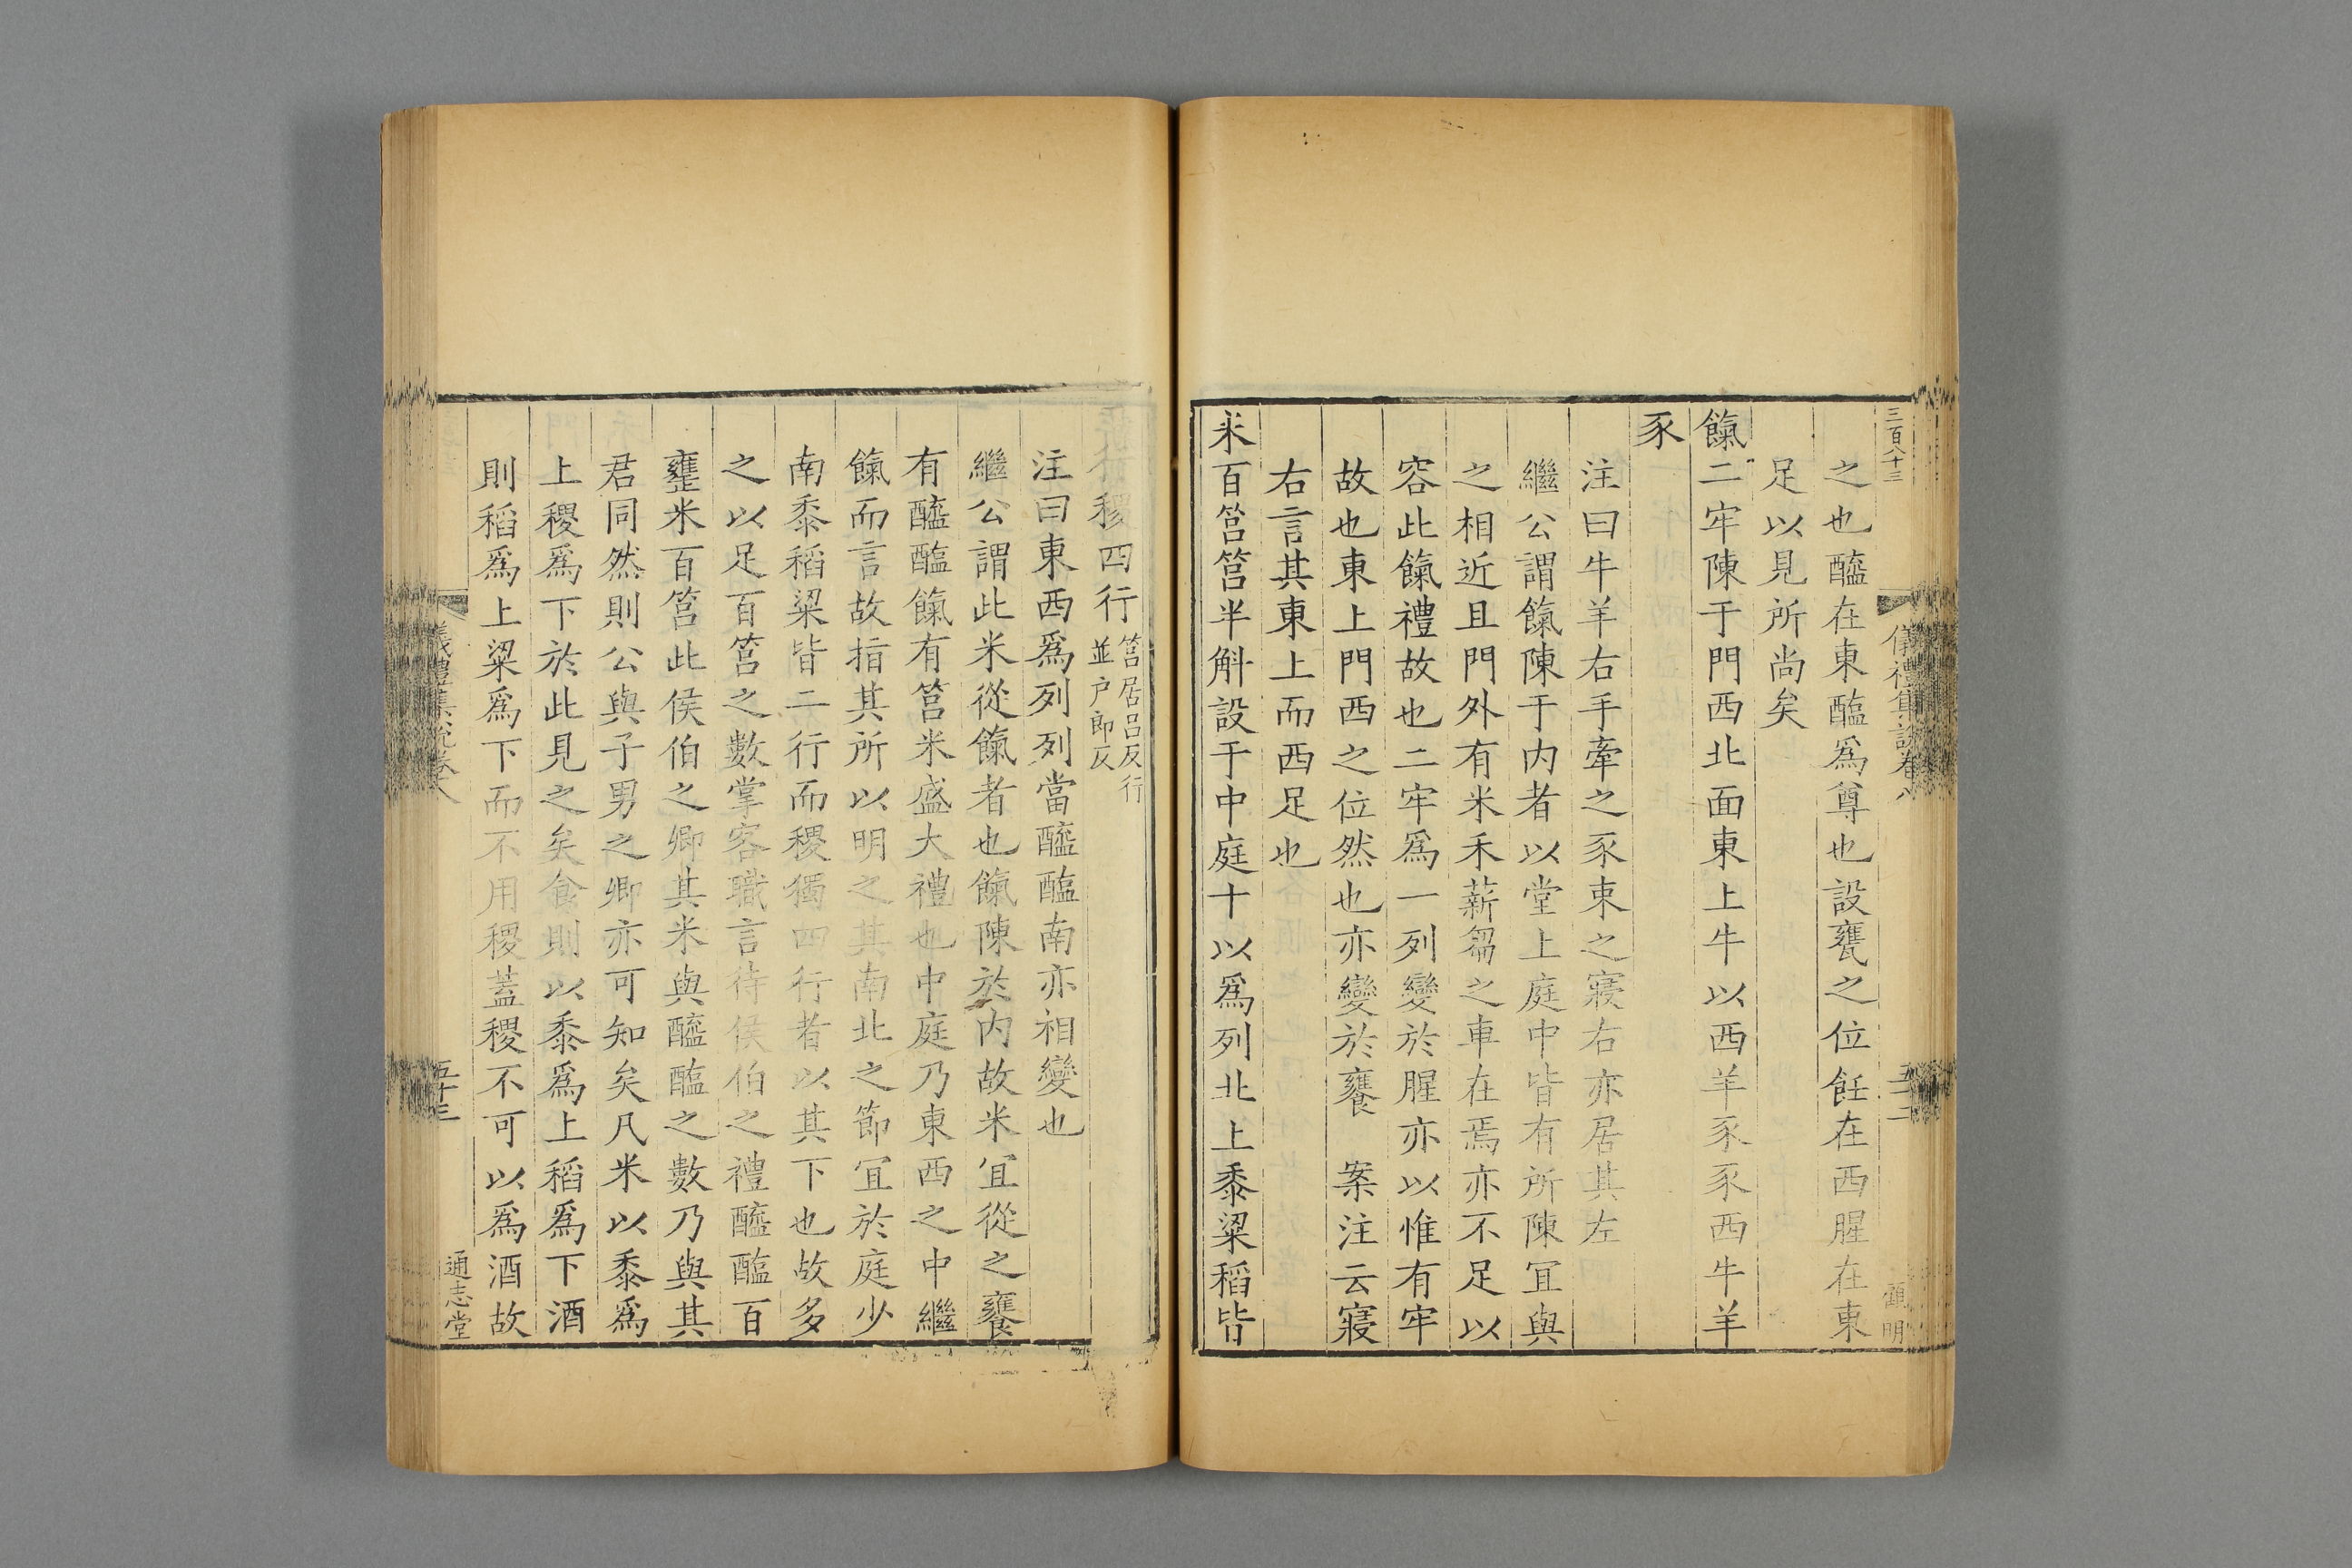 三百八十三
儀禮集說卷八
顧明
之也醯在東醢爲尊也設罋之位飪在西腥在東
足以見所尚矣
餼二牢陳于門西北面東上牛以西羊豕豕西牛羊
豕
注曰牛羊右手牽之豕束之寢右亦居其左
繼公謂餼陳于内者以堂上庭中皆有所陳冝與
之相近且門外有米禾薪芻之車在焉亦不足以
容此餼禮故也二牢爲一列變於腥亦以惟有牢
故也東上門西之位然也亦變於饔 案注云寢
右言其東上而西足也
米百筥筥半斛設于中庭十以爲列北上黍粱稻皆
稷四行筥居吕反行並户郎反
注曰東西爲列列當醯醢南亦相變也
繼公謂此米從餼者也餼陳於内故米冝從之饔
有醯醢餼有筥米盛大禮也中庭乃東西之中繼
餼而言故指其所以明之其南北之節冝於庭少
南黍稻粱皆二行而稷獨四行者以其下也故多
之以足百筥之數掌客職言待侯伯之禮醯醢百
罋米百筥此侯伯之卿其米與醯醢之數乃與其
君同然則公與子男之卿亦可知矣凡米以黍爲
上稷爲下於此見之矣食則以黍爲上稻爲下酒
則稻爲上粱爲下而不用稷蓋稷不可以爲酒故
儀禮集說卷八
五十三
通志堂